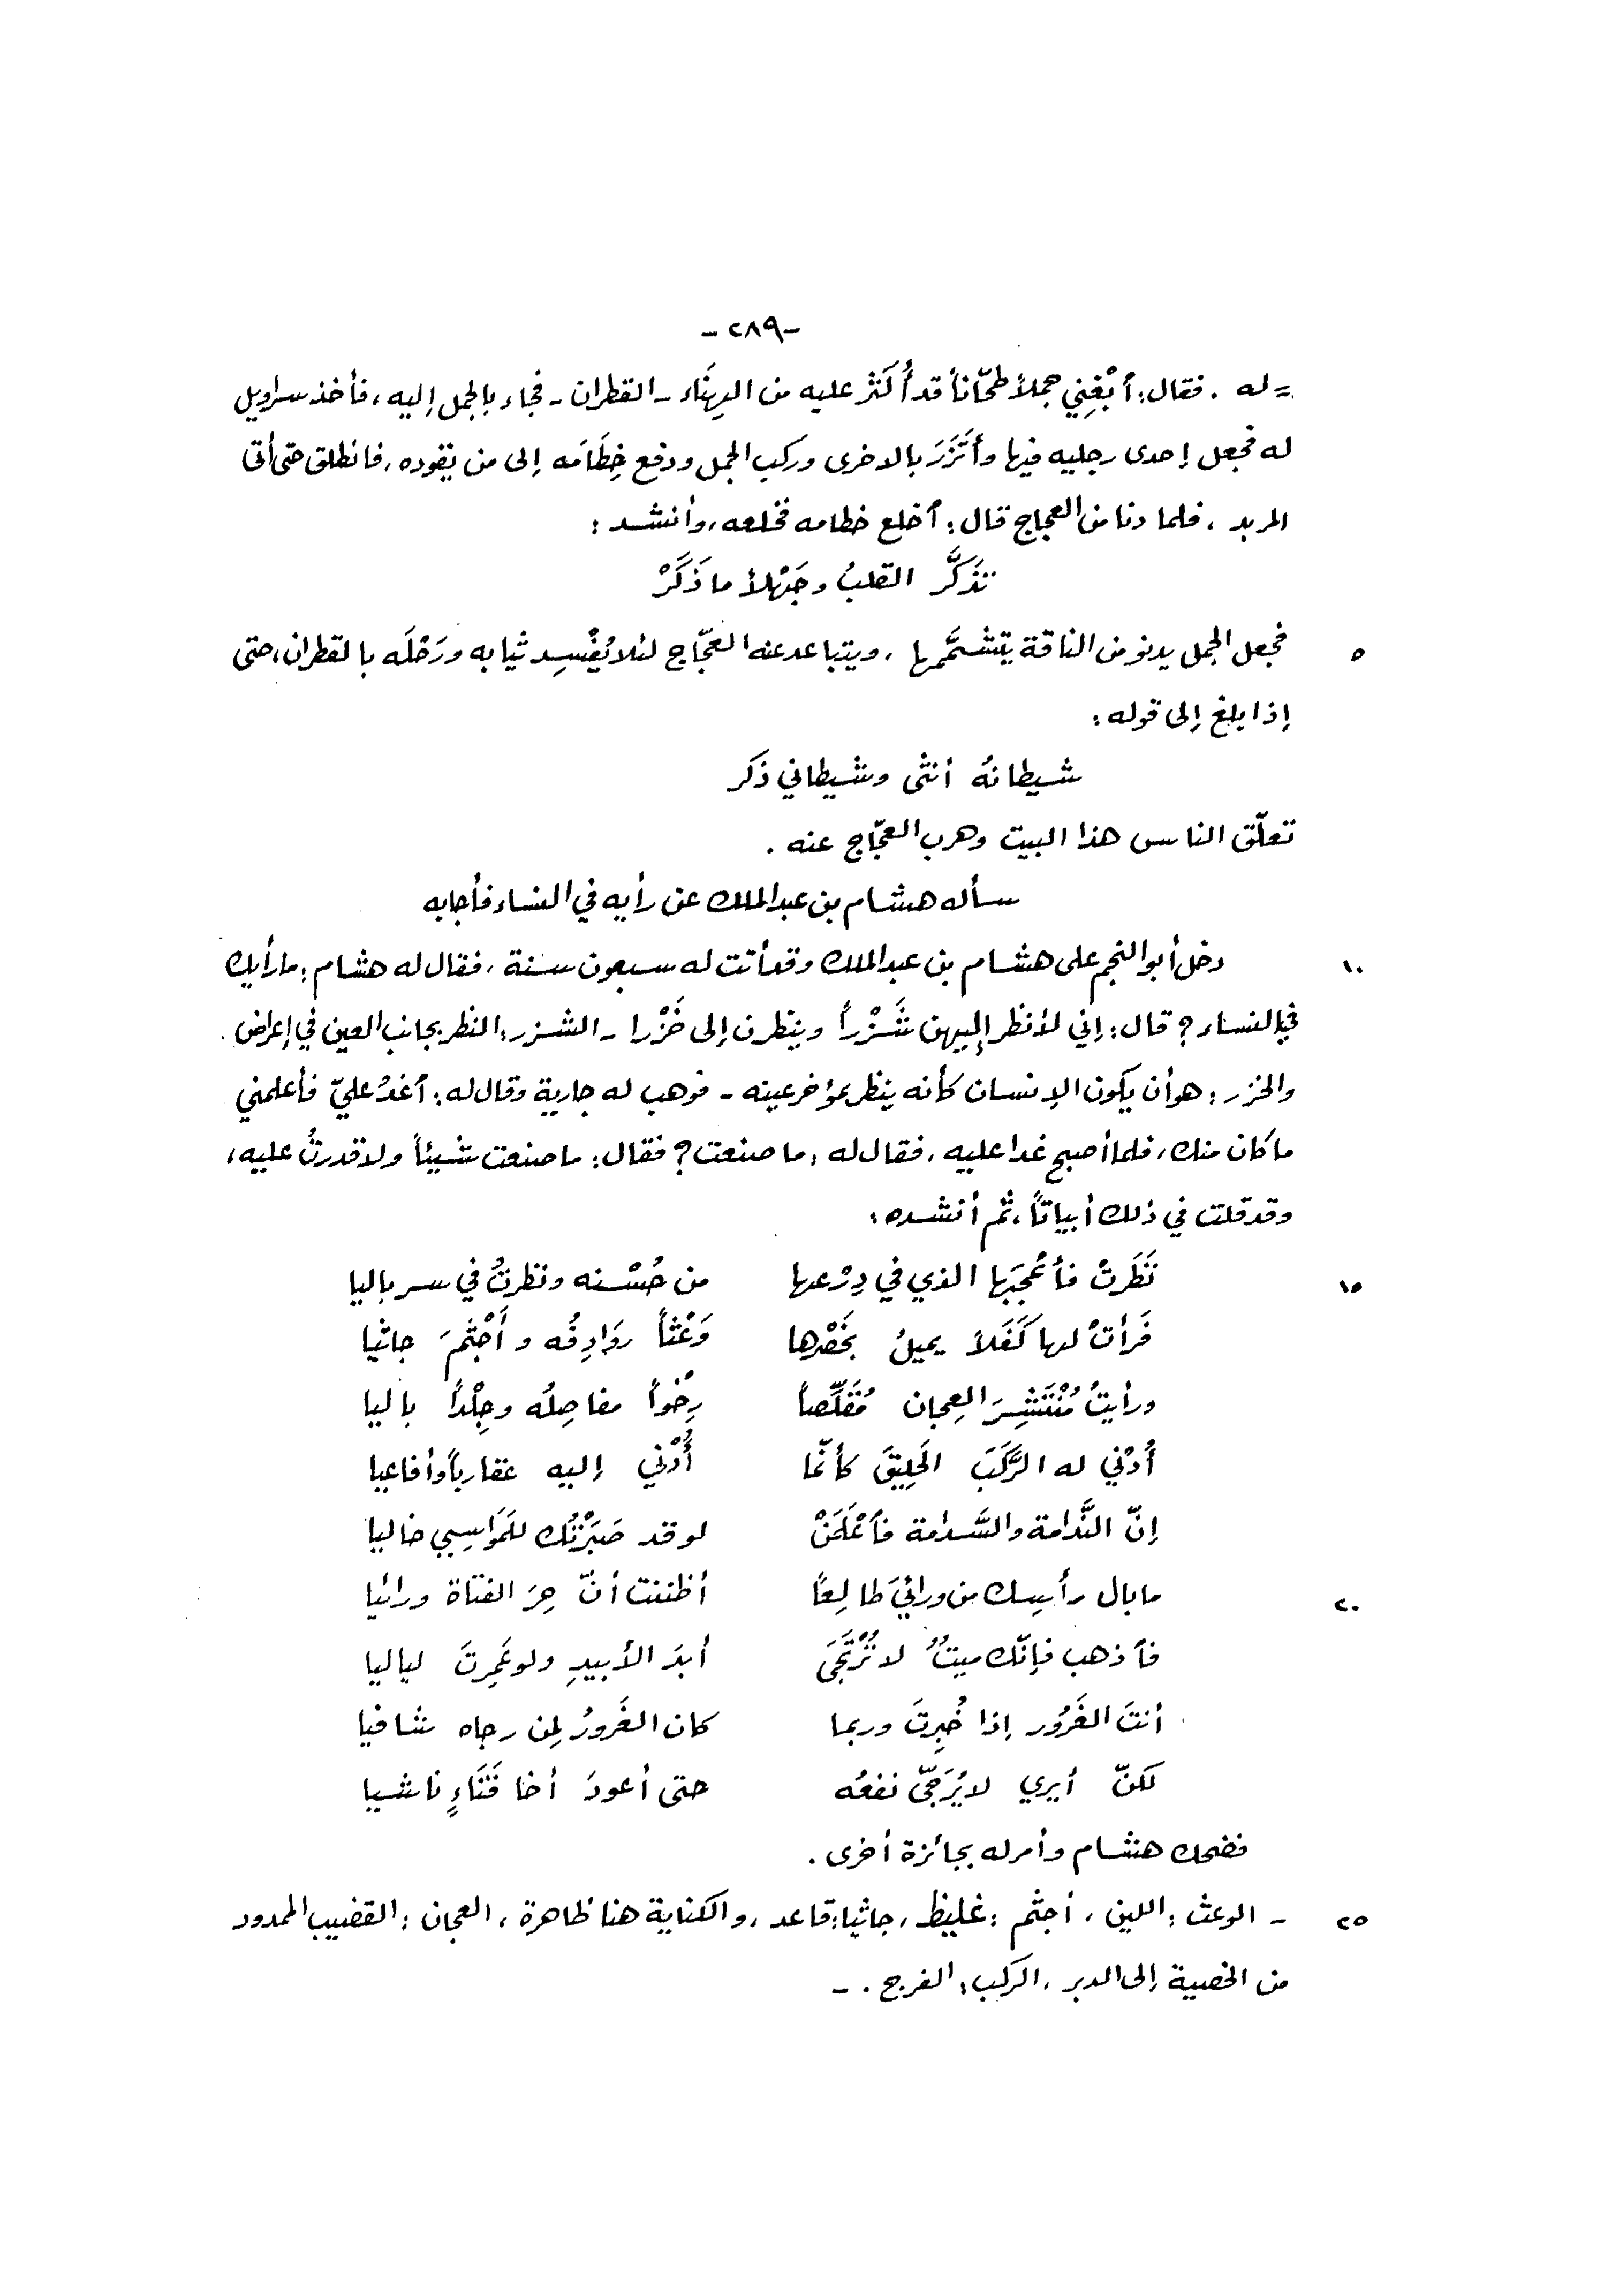 -٢٨٩-
= له . فقال: ٱبْغِني جملاً طحّاناً قد أُكْثِر عليه من الهِنَاء - القطران - فجاء بالجمل إليه، فأخذ سراويل
له فجعل إحدى رجليه فيها وٱتَّزَرَ بالاخرى وركب الجمل ودفع خِطَامَه إلى من يقوده، فانطلق حتى أتى
المربد ، فلما دنا من العجاج قال: ٱخلع خطامه فخلعه، وأنشد :
تَذَكَّر القلبُ وجَهْلاً ما ذَكَرْ
٥ فجعل الجمل يدنو من الناقة يتشمَّمها ، ويتباعد عنه العجّاج لئلا يُفْسِد ثيابه ورَحْلَه بالقطران، حتى
إذا بلغ إلى قوله :
شيطانهُ أنثى وشيطاني ذكر
تعلّق الناس هذا البيت وهرب العجّاج عنه .
سأله هشام بن عبد الملك عن رأيه في النساء فأجابه
١٠ دخل أبو النجم على هشام بن عبد الملك وقد أتت له سبعون سنة ، فقال له هشام : ما رأيك
في النساء ؟ قال : إني لأنظر إليهن شَزْراً وينظرن إلى خَزْرا - الشزر: النظر بجانب العين في إعراض .
والخزر : هو أن يكون الإنسان كأنه ينظر بمؤخر عينه - فوهب له جارية وقال له : ٱغدُ عليّ فأعلمني
ما كان منك ، فلما أصبح غدا عليه ، فقال له : ما صنعت ؟ فقال : ما صنعت شيئاً ولا قدرتُ عليه ،
وقد قلت في ذلك أبياتاً ، ثم أنشده :
١٥ نَظَرَتْ فأعْجَبَها الذي في دِرْعها من حُسْنه ونظرتُ في سرباليا
فَرَأتْ لها كَفَلاً يميلُ بخَصْرها وَعْثاً روَادِفُه وأَجْثَمَ جاثيا
ورأيتُ مُنْتَشِرَ العِجان مُقَلَّصاً رِخْواً مفاصِلُه وجِلْداً باليا
أُدْني له الرَّكَبَ الحَلِيقَ كأنّما أُدْني إليه عقارباً وأفاعيا
إنّ النَّدامة والسَّدامة فٱعْلَمَنْ لو قد صَبَرْتُك للمَوَاسِي خاليا
٢٠ ما بال رأسِك من ورائيَ طالِعاً أظننت أنّ حِرَ الفتاة ورائيا
فٱذهب فإنّك ميتٌ لا تُرْتَجَى أبدَ الأبيدِ ولو عَمِرتَ لياليا
أنتَ الغَرُور إذا خُبِرتَ وربما كان الغَرورُ لمن رجاه شافيا
لكنّ أيري لا يُرَجّى نفعُه حتى أعودَ أخا فَتَاءٍ ناشيا
فضحك هشام وأمر له بجائزة أخرى .
٢٥ - الوعث : اللين ، أجثم : غليظ ، جاثيا : قاعد ، والكناية هنا ظاهرة ، العجان : القضيب الممدود
من الخصية إلى الدبر ، الركب : الفرج . -